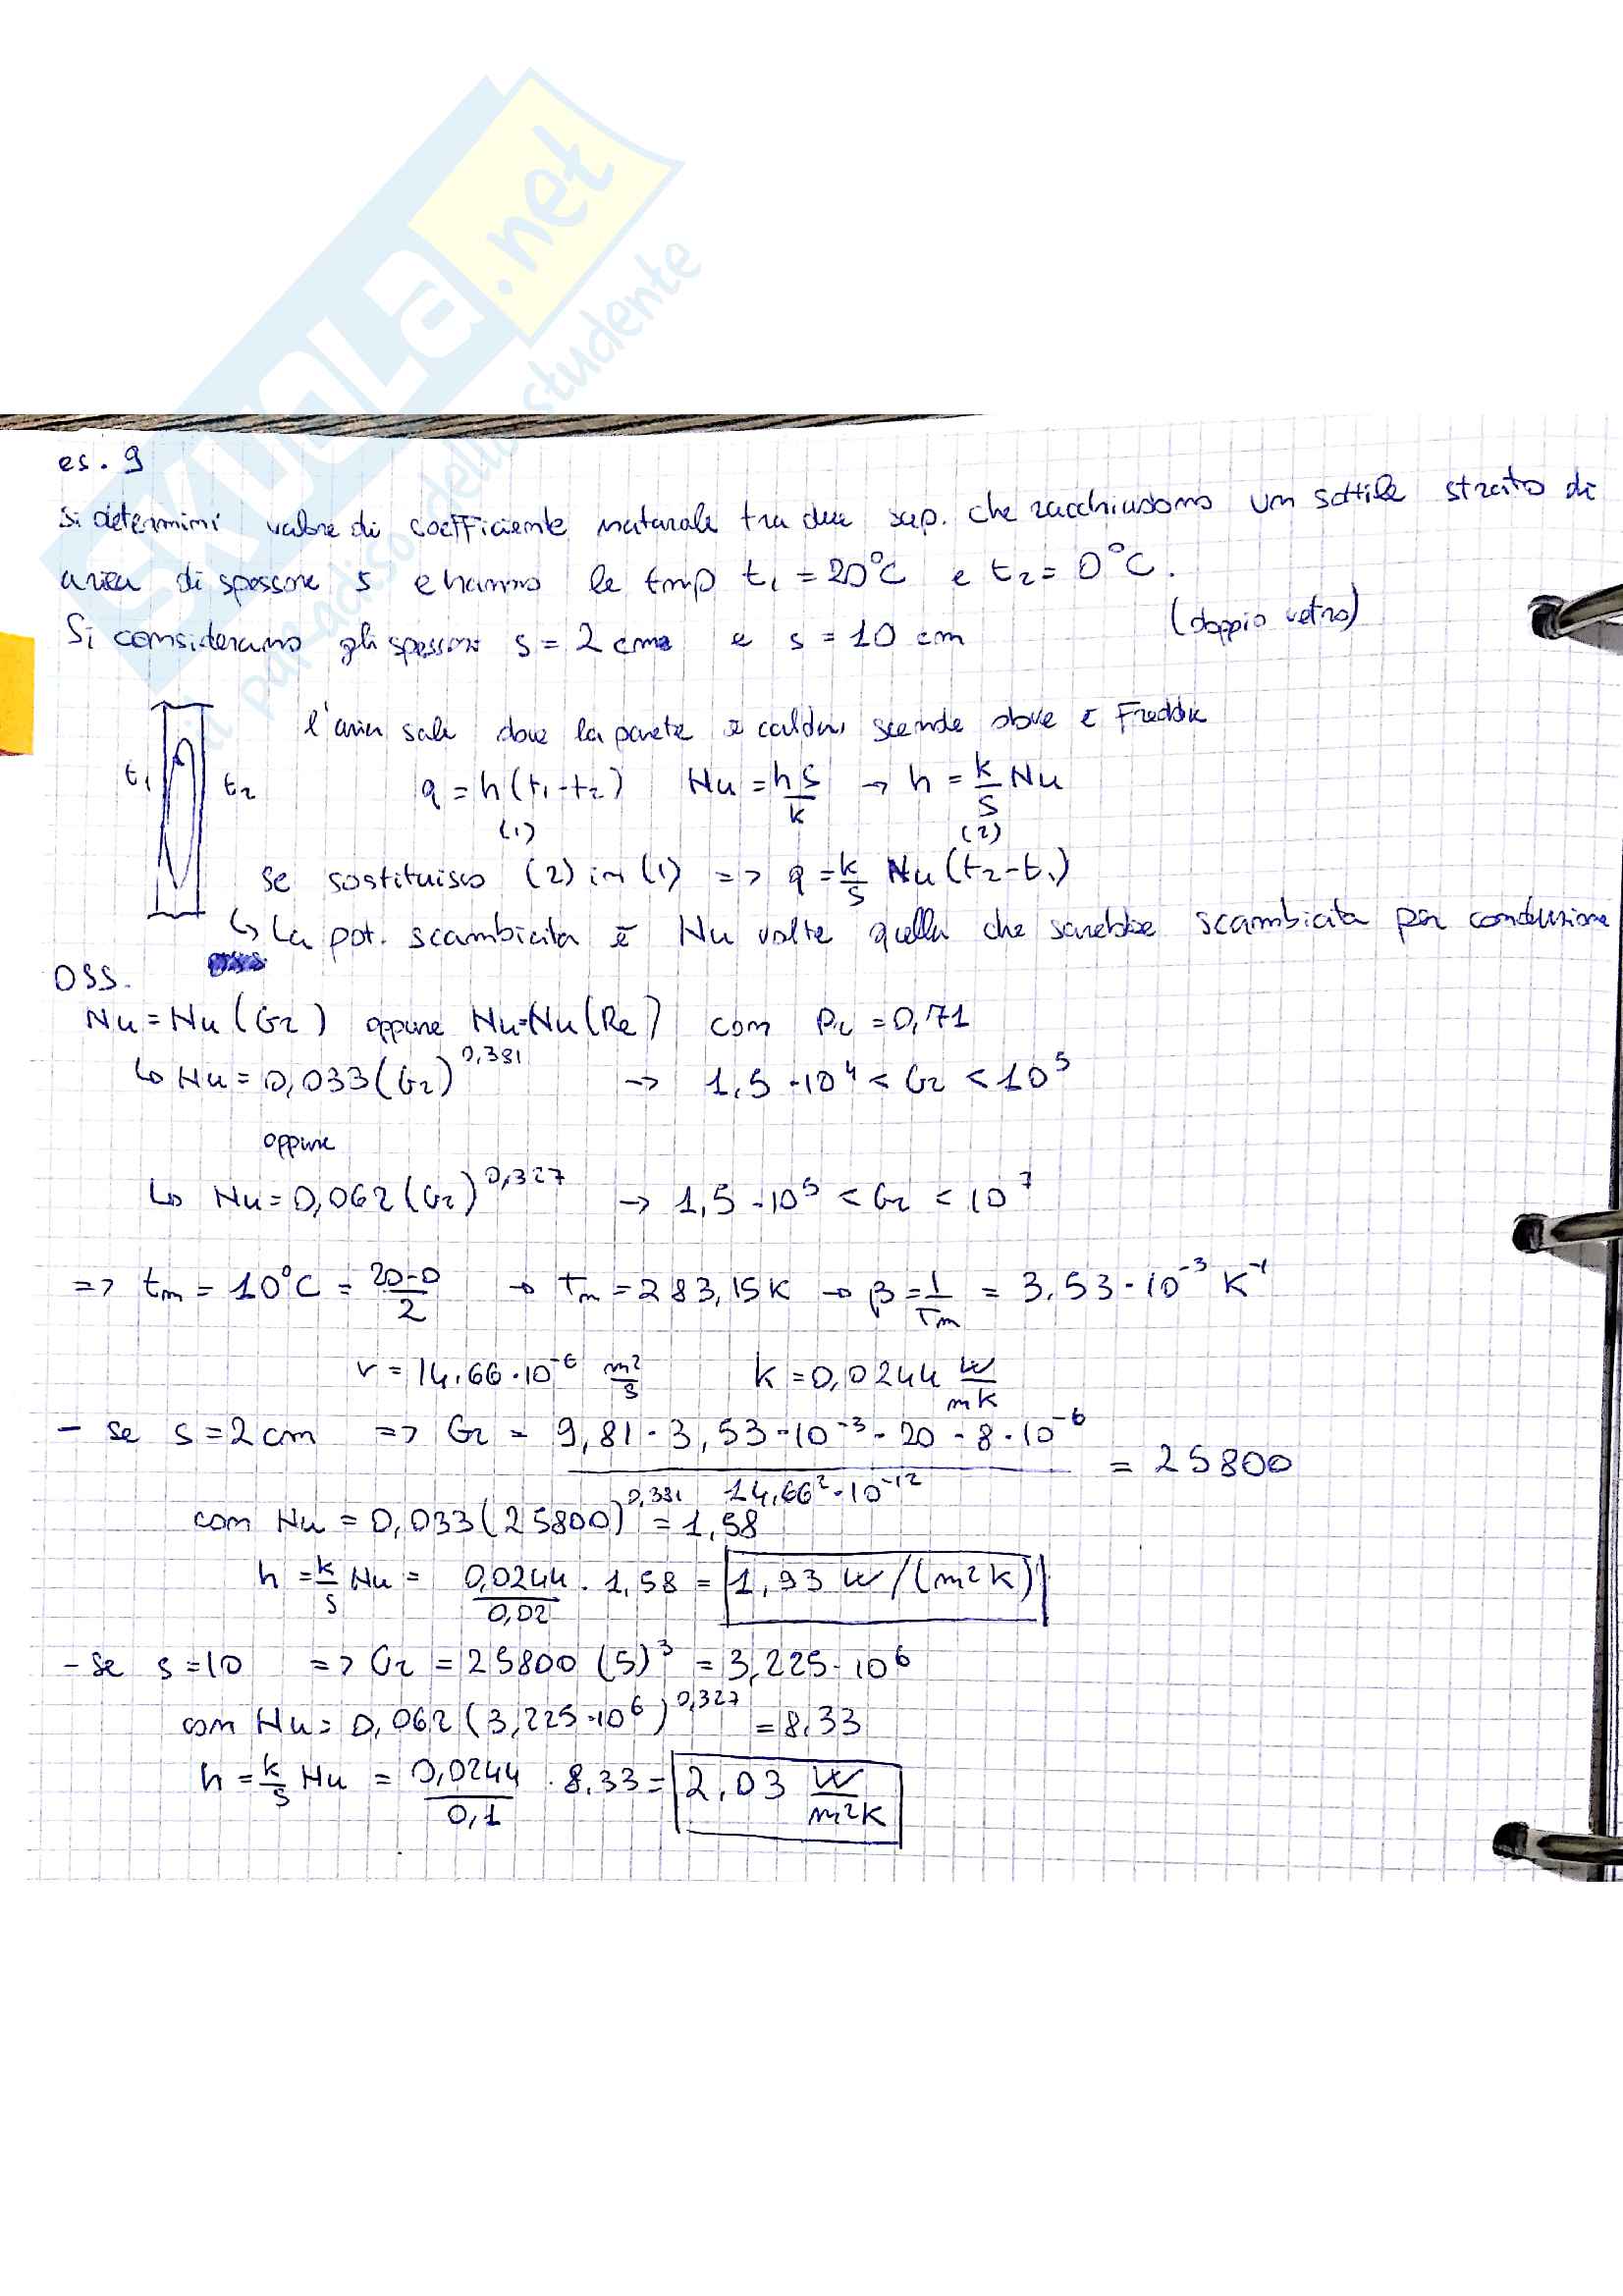 SKUOLA.net
il paradiso dello studente
es. 9
Si determini valore di coefficiente naturale tra due sup. che racchiudono un sottile strato di
aria di spessore s e hanno le tmp t₁ = 20°C e t₂ = 0°C.
Si considerano gli spessori s = 2 cm e s = 10 cm (doppio vetro)
l'aria sale dove la parete è calda, scende dove è fredda
t₁ t₂ q = h(t₁-t₂) Nu = hs/k → h = k/s Nu
(1) (2)
se sostituisco (2) in (1) => q = k/s Nu (t₂-t₁)
↳ La pot. scambiata è Nu volte quella che sarebbe scambiata per conduzione
OSS.
Nu = Nu(Gr) oppure Nu=Nu(Re) con Pr = 0,71
↳ Nu = 0,033(Gr)^0,381 → 1,5·10⁴ < Gr < 10⁵
oppure
↳ Nu = 0,062(Gr)^0,327 → 1,5·10⁵ < Gr < 10⁷
=> tm = 10°C = 20-0/2 → Tm = 283,15K → β = 1/Tm = 3,53·10⁻³ K⁻¹
ν = 14,66·10⁻⁶ m²/s k = 0,0244 W/mK
- se s = 2 cm => Gr = 9,81·3,53·10⁻³·20·8·10⁻⁶ / 14,66²·10⁻¹² = 25800
con Nu = 0,033(25800)^0,381 = 1,58
h = k/s Nu = 0,0244/0,02 · 1,58 = 1,93 W/(m²K)
- se s = 10 => Gr = 25800 (5)³ = 3,225·10⁶
con Nu = 0,062(3,225·10⁶)^0,327 = 8,33
h = k/s Nu = 0,0244/0,1 · 8,33 = 2,03 W/m²K